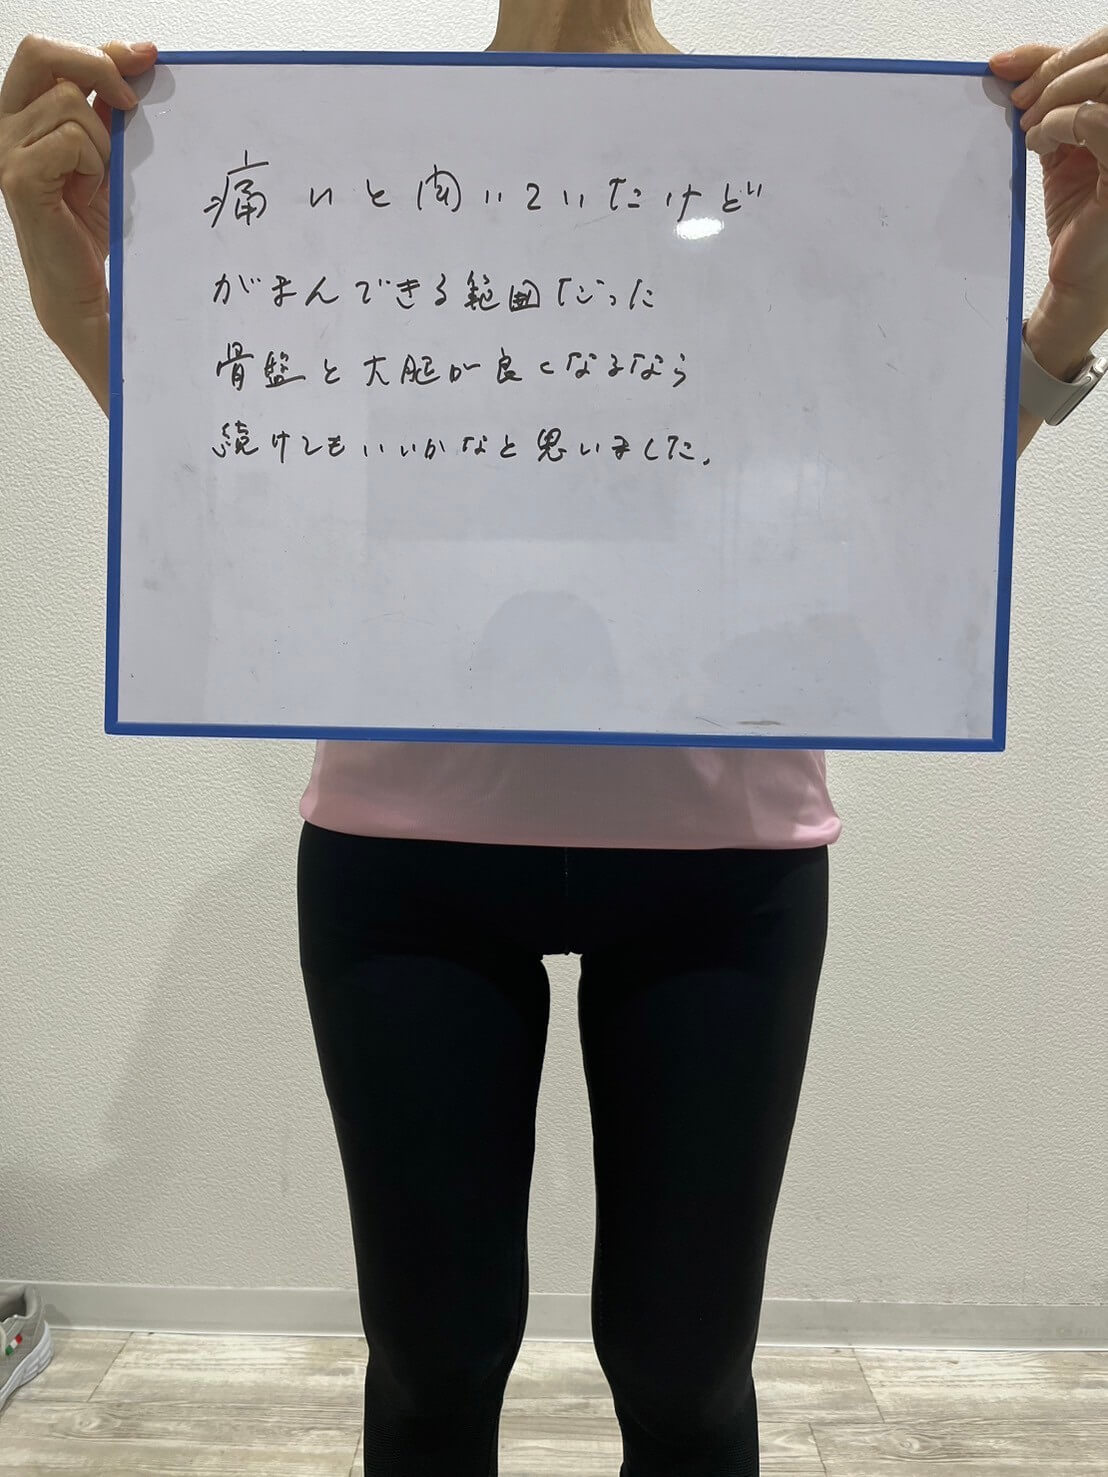 痛いと聞いていたけど
がまんできる範囲だった
骨盤と大腿が良くなるなら
続けてもいいかなと思いました。